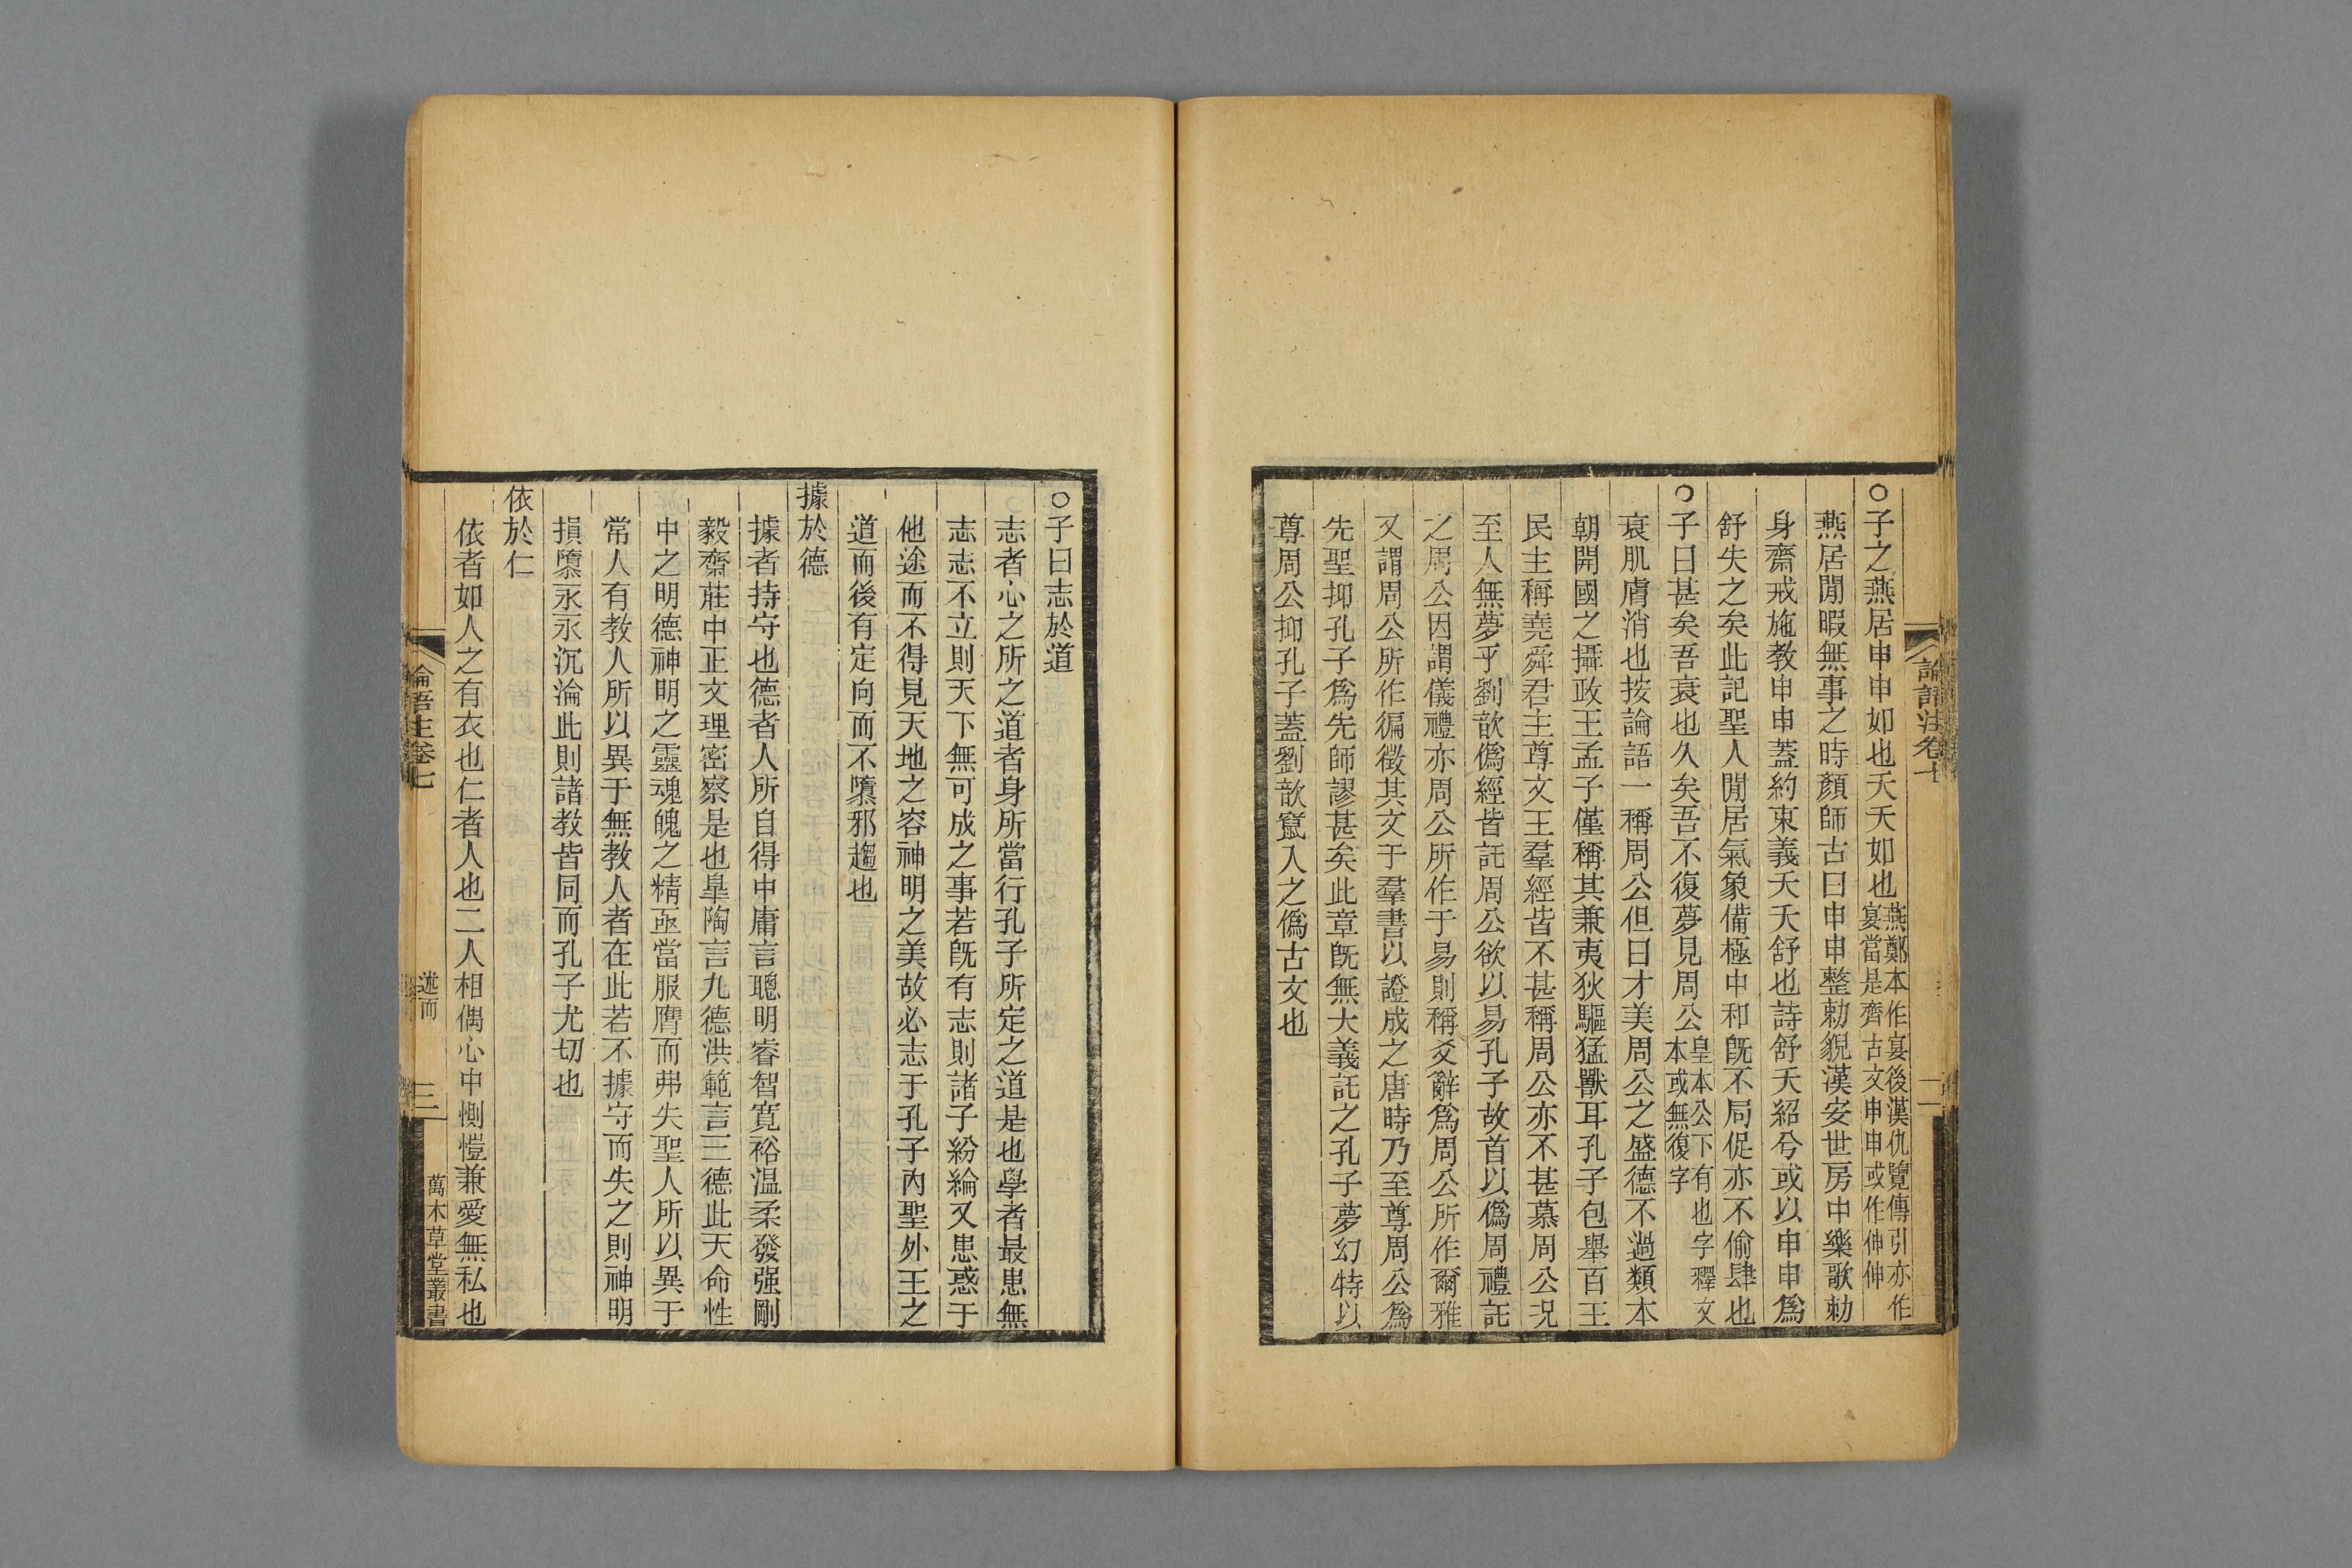 論語注卷七
二
○子之燕居申申如也夭夭如也燕鄭本作宴後漢仇覽傳引亦作宴當是齊古文申申或作伸伸
燕居閒暇無事之時顏師古曰申申整勅貌漢安世房中樂歌勅
身齋戒施教申申蓋約束義夭夭舒也詩舒夭紹兮或以申申爲
舒失之矣此記聖人閒居氣象備極中和旣不局促亦不偷肆也
○子曰甚矣吾衰也久矣吾不復夢見周公皇本公下有也字釋文本或無復字
衰肌膚消也按論語一稱周公但曰才美周公之盛德不過類本
朝開國之攝政王孟子僅稱其兼夷狄驅猛獸耳孔子包舉百王
民主稱堯舜君主尊文王羣經皆不甚稱周公亦不甚慕周公況
至人無夢乎劉歆僞經皆託周公欲以易孔子故首以僞周禮託
之周公因謂儀禮亦周公所作于易則稱爻辭爲周公所作爾雅
又謂周公所作徧徵其文于羣書以證成之唐時乃至尊周公爲
先聖抑孔子爲先師謬甚矣此章旣無大義託之孔子夢幻特以
尊周公抑孔子蓋劉歆竄入之僞古文也
○子曰志於道
志者心之所之道者身所當行孔子所定之道是也學者最患無
志志不立則天下無可成之事若旣有志則諸子紛綸又患惑于
他途而不得見天地之容神明之美故必志于孔子內聖外王之
道而後有定向而不隳邪趨也
據於德
據者持守也德者人所自得中庸言聰明睿智寬裕温柔發强剛
毅齋莊中正文理密察是也臯陶言九德洪範言三德此天命性
中之明德神明之靈魂魄之精亟當服膺而弗失聖人所以異于
常人有教人所以異于無教人者在此若不據守而失之則神明
損隳永永沉淪此則諸教皆同而孔子尤切也
依於仁
依者如人之有衣也仁者人也二人相偶心中惻愷兼愛無私也
論語注卷七
述而
三
萬木草堂叢書